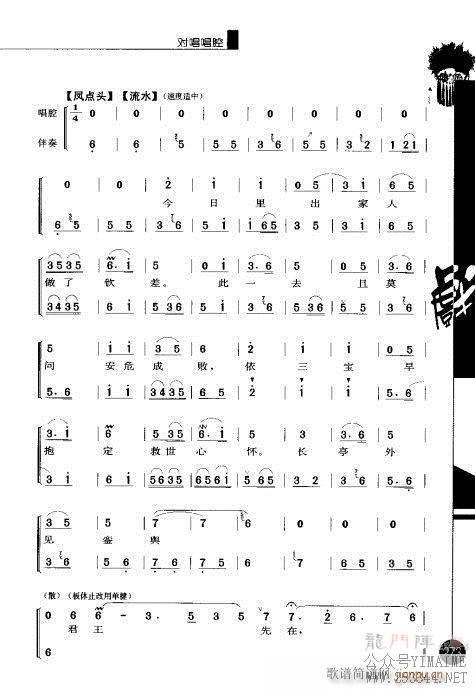 对唱唱腔
【凤点头】【流水】(速度适中)
唱腔 1/4 0 0 0 0 0 0 0 0
伴奏 6 6 5 5 3 6 5 3 2 1 2 1
0 0 2 1 1 0 5 3 1 6 5
今 日 里 出 家 人
6 5 5 5 1 2 1 2 1 6 5 0 5 3 2 3 5
3 5 3 5 6. 1 5 5 1 3. 6 5 3. 6
做 了 钦 差。 此 一 去 且 莫
3 4 3 5 6. 1 5 6 1 5 3 6 5 6 5 3 6
5 1 1 3 5 6 2 1 1 5. 6
问 安 危 成 败, 依 三 宝 早
5. 6 1 1 3 4 3 5 6 2 1 1 5. 6
3. 1 6 5 3 5 6. 5 3 3. 6 5
抱 定 救 世 心 怀。 长 亭 外
3. 1 6 5 6 3 5 6 5 6 1 5 3 5 3. 6 5
3 5 5 7 7 6 0 0 0
见 銮 舆
3 5 5 7 7 6 3 5 5
(散)(板休止改用单楗)
0 6 6 - 3. 5 3 5 7 7. 2. 7 6
君 王 先 在,
6
龙门阵
公众号YIMAIME
歌谱简谱网
jianpu.cn